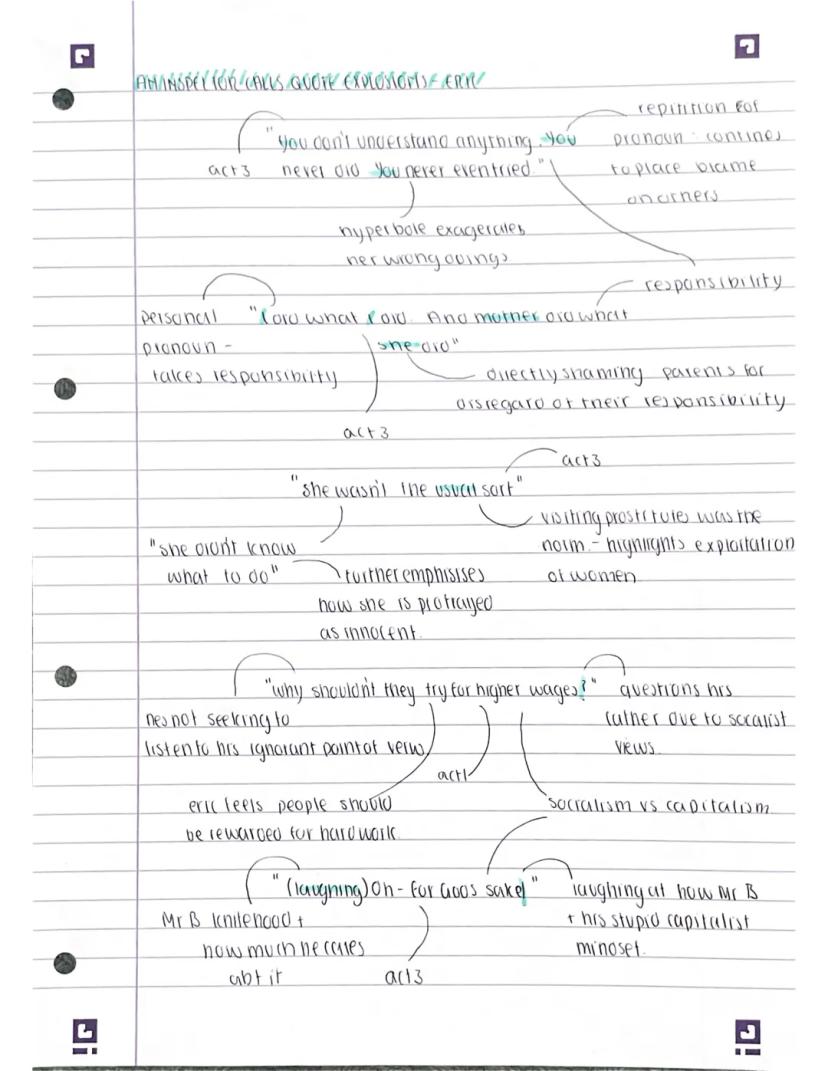 AN INSPECTOR CALLS QUOTE EXPLOSIONS - ERIC
repitition for
"You don't understand anything. You
pronoun: contines
act 3
never did You never even tried."
to place blame
on others
hyperbole exagerates
her wrong doings
responsibility
personal
"I did what I did. And mother did what
pronoun -
she did"
takes responsibilty
directly shaming parents for
disregard of their responsibility
act 3
act 3
"she wasn't the usual sort"
visiting prostitutes was the
"she didn't know
norm - highlights exploitation
what to do"
further emphisises
of women
how she is protrayed
as innocent.
"why shouldn't they try for higher wages?"
questions his
hes not seeking to
father due to socalist
listen to his ignorant point of veiw
views.
act 1
eric feels people should
socialism vs capitalism
be rewarded for hard work
"(laughing) Oh - for Gods sake!"
laughing at how Mr B
Mr B knitehood +
+ his stupid capitalist
how much he cares
mindset.
abt it
act 3